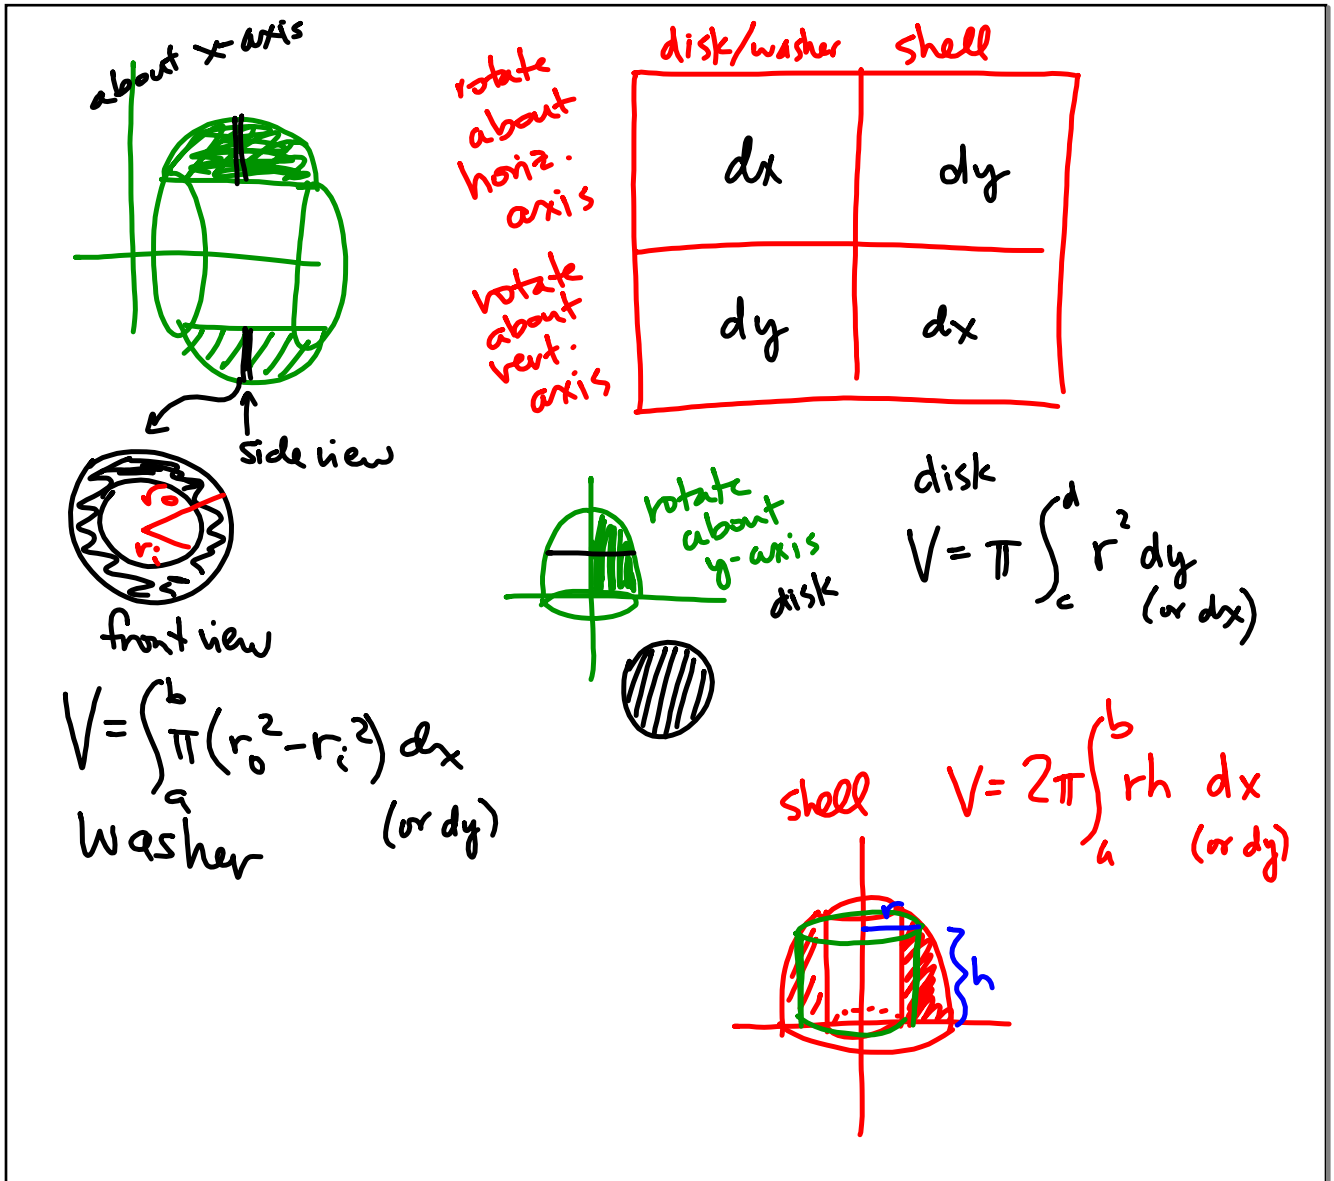 about x-axis
side view
r₀
rᵢ
front view
V = ∫ₐᵇ π(r₀² - rᵢ²) dx
(or dy)
washer
disk/washer shell
rotate
about
horiz.
axis
dx dy
rotate
about
vert.
axis
dy dx
rotate
about
y-axis
disk
disk
V = π ∫_c^d r² dy
(or dx)
shell
V = 2π ∫ₐᵇ rh dx
(or dy)
r
h